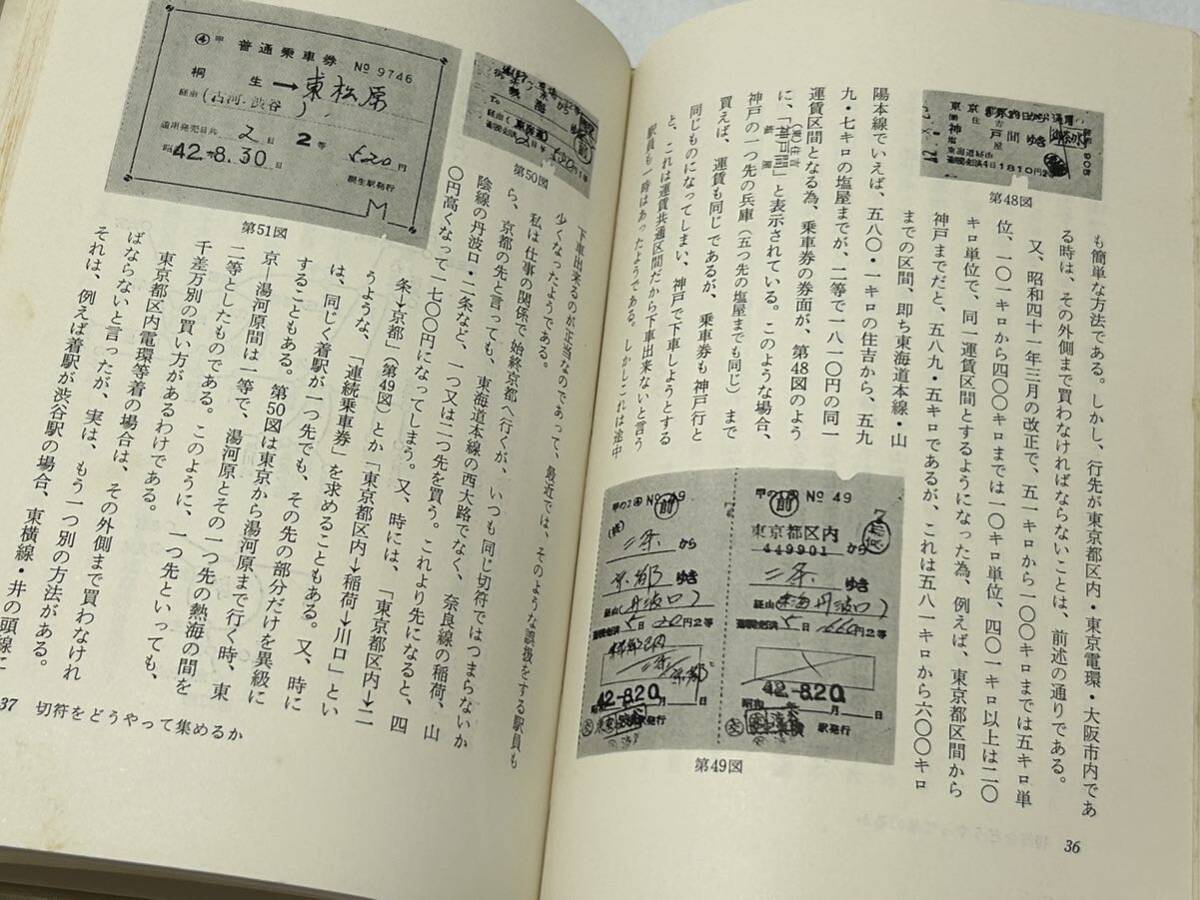 も簡単な方法である。しかし、行先が東京都区内・東京電環・大阪市内であ
る時は、その外側まで買わなければならないことは、前述の通りである。
又、昭和四十一年三月の改正で、五一キロから一〇〇キロまでは五キロ単
位、一〇一キロから四〇〇キロまでは一〇キロ単位、四〇一キロ以上は二〇
キロ単位で、同一運賃区間とするようになった為、例えば、東京都区間から
神戸までだと、五八九・五キロであるが、これは五八一キロから六〇〇キロ
までの区間、即ち東海道本線・山
陽本線でいえば、五八〇・一キロの住吉から、五九
九・七キロの塩屋までが、二等で一八一〇円の同一
運賃区間となる為、乗車券の券面が、第48図のよう
に、「神戸間」と表示されている。このような場合、
神戸の一つ先の兵庫(五つ先の塩屋までも同じ)まで
買えば、運賃も同じであるが、乗車券も神戸行と
同じものになってしまい、神戸で下車しようとする
と、これは運賃共通区間だから下車出来ないと言う
駅員も一時はあったようである。しかしこれは途中
第48図
東京
神戸間ゆき
東海道経由
1810円2等
第49図
甲の2
No 49
前
二条から
京都ゆき
経由(丹波口)
5日20円2等
42.-8.20
駅発行
No 49
前
東京都区内
449901から
二条ゆき
5日
660円2等
42.-8.20
駅発行
36
下車出来るのが正当なのであって、最近では、そのような誤扱をする駅員も
少くなったようである。
私は仕事の関係で始終京都へ行くが、いつも同じ切符ではつまらないか
ら、京都の先と言っても、東海道本線の西大路でなく、奈良線の稲荷、山
陰線の丹波口・二条など、一つ又は二つ先を買う。これより先になると、四
〇円高くなって一七〇〇円になってしまう。又、時には、「東京都区内→二
条→京都」(第49図)とか「東京都区内→稲荷→川口」とい
うような、「連続乗車券」を求めることもある。又、時に
は、同じく着駅が一つ先でも、その先の部分だけを異級に
することもある。第50図は東京から湯河原まで行く時、東
京―湯河原間は一等で、湯河原とその一つ先の熱海の間を
二等としたものである。このように、一つ先といっても、
千差万別の買い方があるわけである。
東京都区内電環等着の場合は、その外側まで買わなけれ
ばならないと言ったが、実は、もう一つ別の方法がある。
それは、例えば着駅が渋谷駅の場合、東横線・井の頭線に
第50図
熱海ゆき
第51図
④
普通乗車券
No 9746
桐生→東松原
経由(古河・渋谷)
通用発売日共2日2等520円
昭42.-8.30
桐生駅発行
M
37 切符をどうやって集めるか